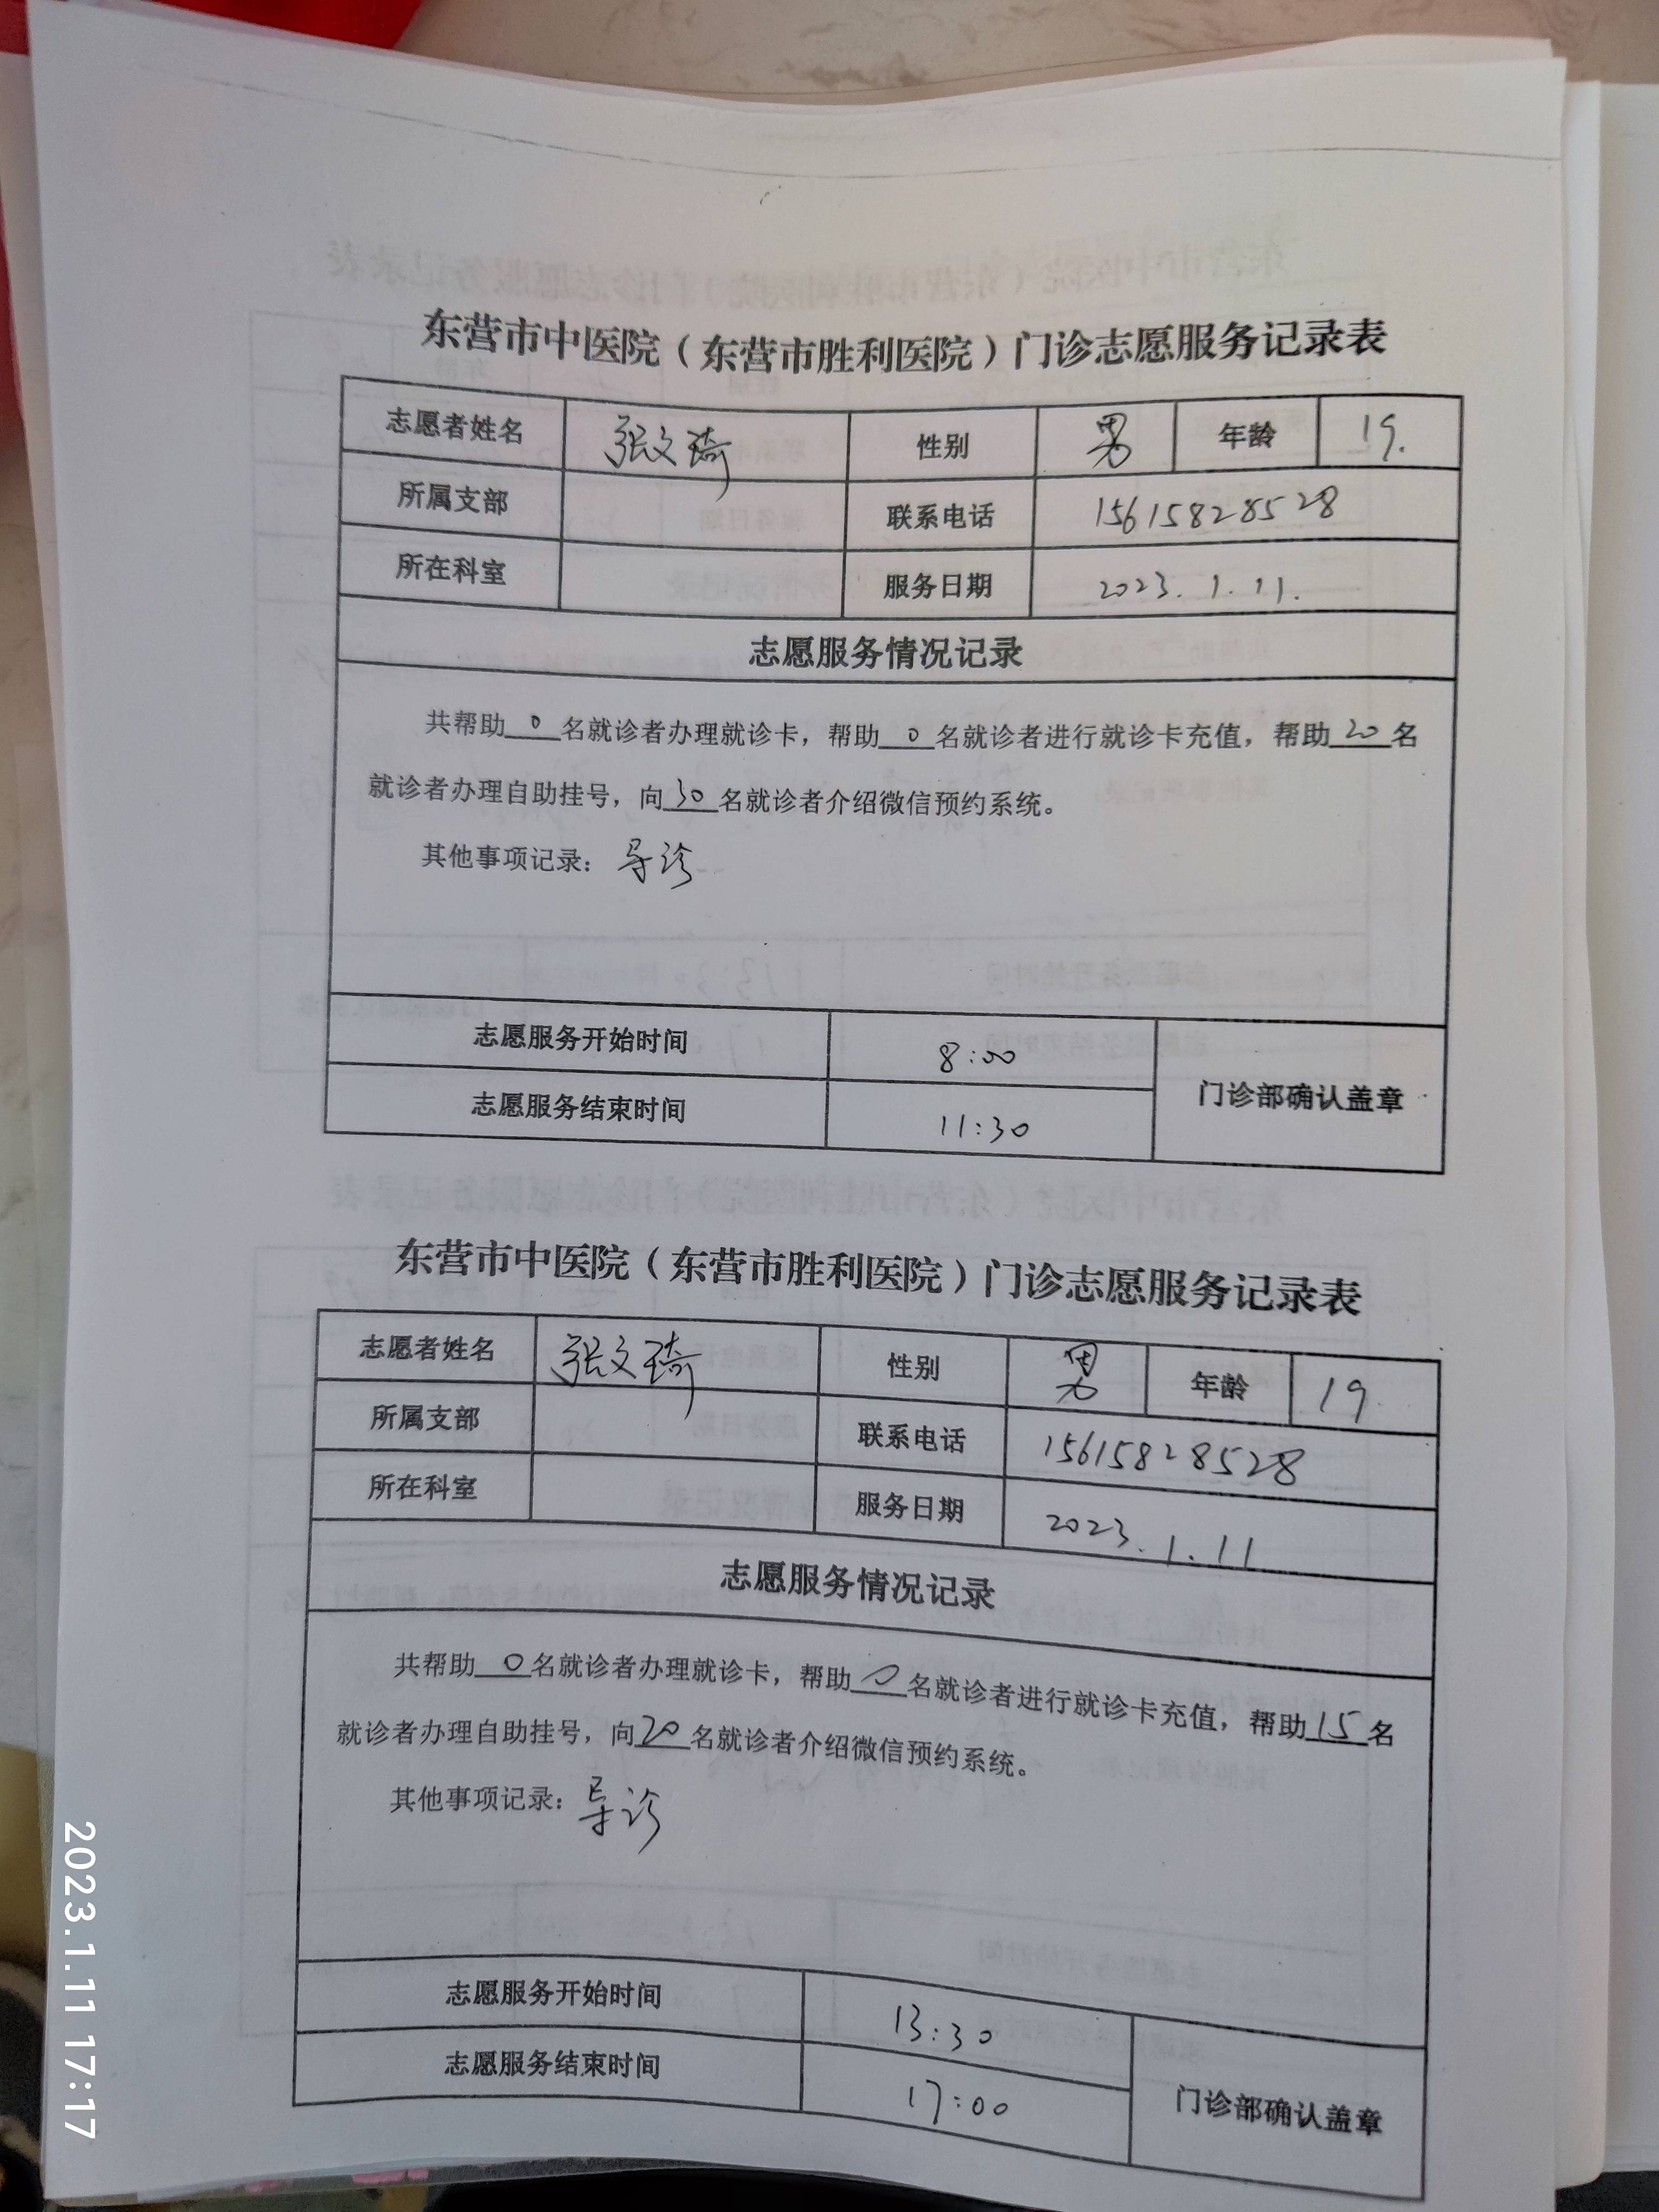 东营市中医院（东营市胜利医院）门诊志愿服务记录表
志愿者姓名 张文琦 性别 男 年龄 19.
所属支部 联系电话 15615828528
所在科室 服务日期 2023.1.11.
志愿服务情况记录
共帮助0名就诊者办理就诊卡，帮助0名就诊者进行就诊卡充值，帮助20名
就诊者办理自助挂号，向30名就诊者介绍微信预约系统。
其他事项记录：导诊
志愿服务开始时间 8:00
志愿服务结束时间 11:30
门诊部确认盖章
东营市中医院（东营市胜利医院）门诊志愿服务记录表
志愿者姓名 张文琦 性别 男 年龄 19
所属支部 联系电话 15615828528
所在科室 服务日期 2023.1.11
志愿服务情况记录
共帮助0名就诊者办理就诊卡，帮助0名就诊者进行就诊卡充值，帮助15名
就诊者办理自助挂号，向20名就诊者介绍微信预约系统。
其他事项记录：导诊
志愿服务开始时间 13:30
志愿服务结束时间 17:00
门诊部确认盖章
2023.1.11 17:17